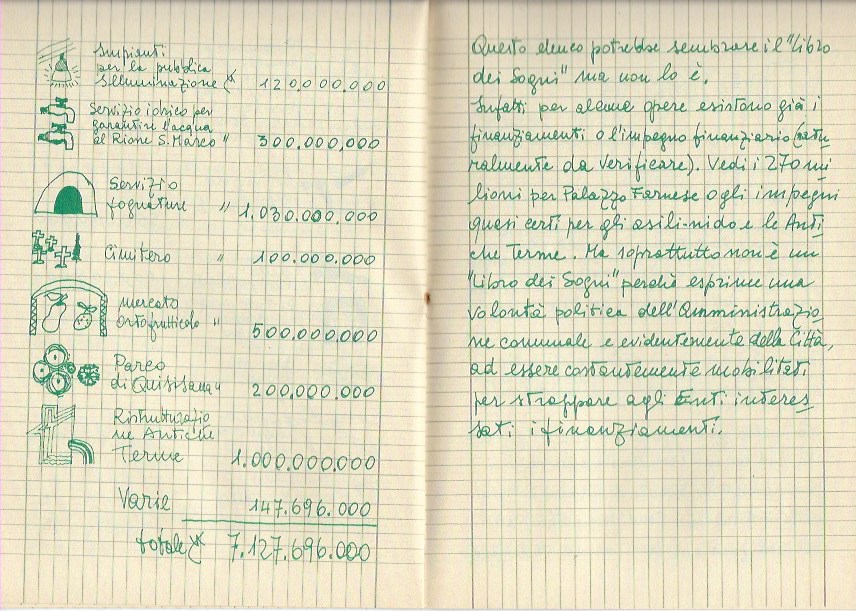 Impianti
per la pubblica
Illuminazione £ 120.000.000
Servizio idrico per
garantire l'acqua
al Rione S. Marco " 300.000.000
Servizio
fognature " 1.030.000.000
Cimitero " 100.000.000
mercato
ortofrutticolo " 500.000.000
Parco
di Quisisana " 200.000.000
Ristrutturazio
ne Antiche
Terme 1.000.000.000
Varie 147.696.000
totale £ 7.127.696.000
Questo elenco potrebbe sembrare il "Libro
dei Sogni" ma non lo è.
Infatti per alcune opere esistono già i
finanziamenti o l'impegno finanziario (natu
ralmente da verificare). Vedi i 270 mi
lioni per Palazzo Farnese o gli impegni
quasi certi per gli asili-nido e le Anti
che Terme. Ma soprattutto non è un
"Libro dei Sogni" perchè esprime una
volontà politica dell'Amministrazio
ne comunale e evidentemente della Città,
ad essere costantemente mobilitati
per strappare agli Enti interes
sati i finanziamenti.